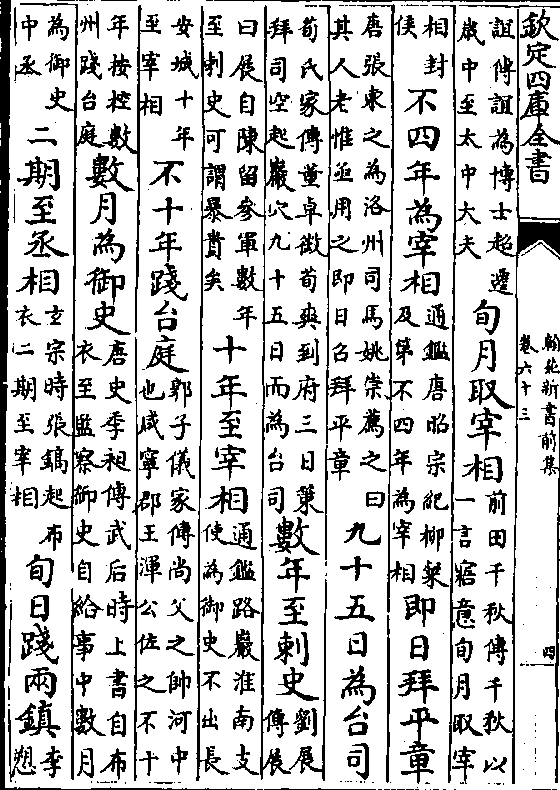 欽定四庫全書
翰苑新書前集
卷六十三
四
誼傳誼為博士超遷
歲中至太中大夫
旬月取宰相
前田千秋傳千秋以
一言寤意旬月取宰
相封
侯
不四年為宰相
通鑑唐昭宗紀柳粲
及第不四年為宰相
即日拜平章
唐張柬之為洛州司馬姚崇薦之曰
其人老惟亟用之即日召拜平章
九十五日為台司
荀氏家傳董卓徵荀爽到府三日策
拜司空起巖穴九十五日而為台司
數年至刺史
劉展
傳展
曰展自陳留參軍數年
至刺史可謂暴貴矣
十年至宰相
通鑑路巖淮南支
使為御史不出長
安城十年
至宰相
不十年踐台庭
郭子儀家傳尚父之帥河中
也咸寧郡王渾公位之不十
年按控數
州踐台庭
數月為御史
唐史季昶傳武后時上書自布
衣至監察御史自給事中數月
為御史
中丞
二期至丞相
玄宗時張鎬起布
衣二期至宰相
旬日踐兩鎮
李
愬